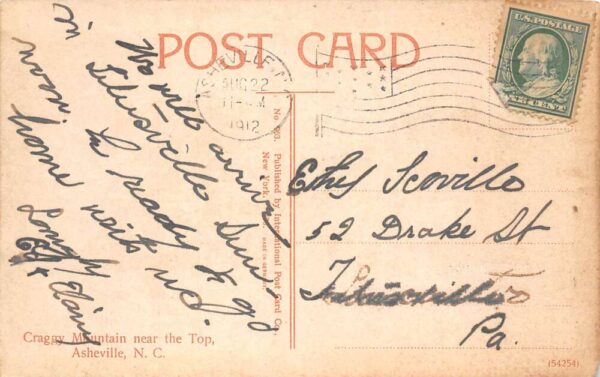 POST CARD
ASHEVILLE, N.C.
AUG 22
11-
1912
U.S. POSTAGE
We will arrive
in Titusville Sun.
noon. Be ready to go
home with us.
No. 
Published by International Post Card Co.,
New York.
Scoville
52 Drake St
Titusville
Pa.
Craggy Mountain near the Top,
Asheville, N. C.
(54254)